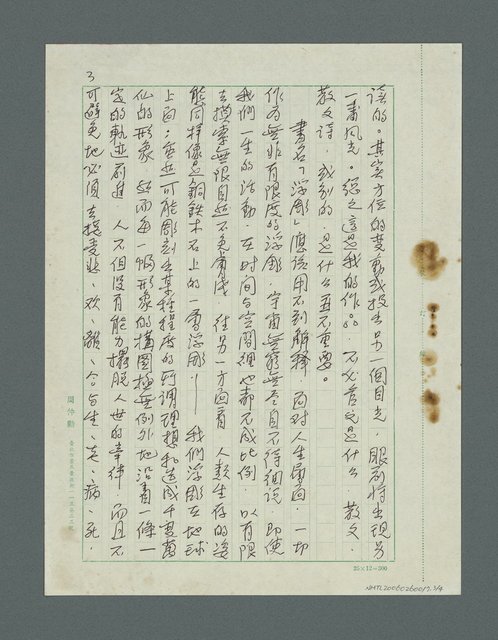 談的。其實方位的變動或投出另一個目光，眼前將出現另
一番風光。總之這是我的作品，不必管它是什麼，散文、
散文詩，或別的，是什么再不重要。
書名「浮彫」應該用不到解釋，面對人生層面，一切
作為無非有限度的浮彫，宇宙無窮無盡自不待細說，即使
我們一生的活動，在時間与空間裡也都不成比例，以有限
去摸索無限自然不免膚淺，從另一方面看，人類生存的姿
態同樣像是銅鉄木石上的一番浮彫——我們浮彫在地球
上面；無可能彫刻出某種程度的所謂理想和造成千變萬
化的形象，然而每一幅形象的構圖極無例外地沿着一條一
定的軌迹前進，人不但沒有能力擺脫人世的章律，而且不
可避免地必須去接受悲、欢、離、合与生、老、病、死。
3
周伯勳
25×12=300
NMTL20060260017 3/4